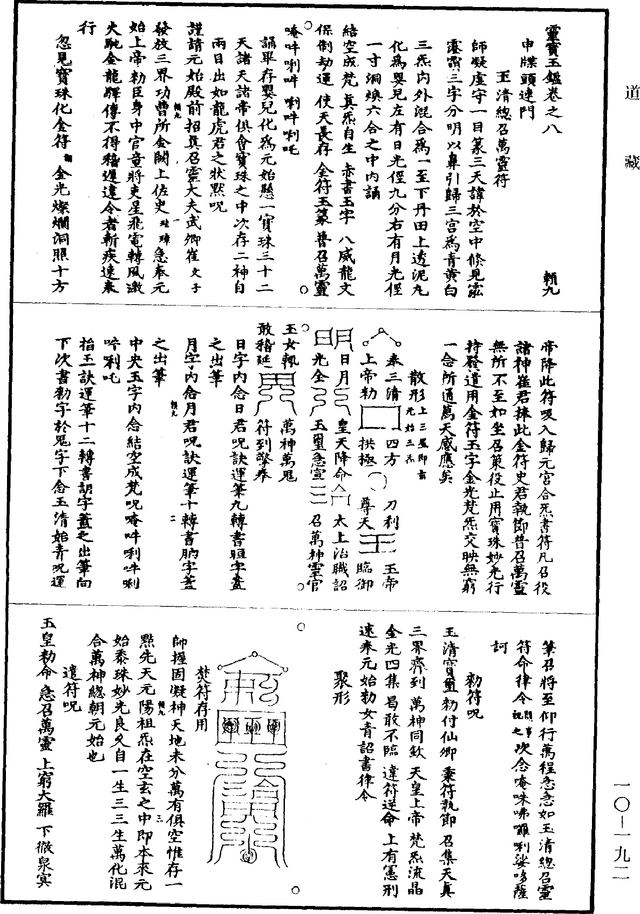 道藏
靈寶玉鑑卷之八
賴九
申牒頭連門
玉清總召萬靈符
師凝虛守一目篆三天諱於空中倏見
霄三字分明以鼻引歸三宮爲青黃白
三炁內外混合爲一至下丹田上透泥丸
化爲嬰兒左有日光徑九分右有月光徑
一寸洞煥六合之中內誦
結空成梵真炁自生赤書玉字八威龍文
保制劫運使天長存金符玉篆普召萬靈
唵吽唎吽唎吽唎吒
誦畢存嬰兒化爲元始懸一寶珠三十二
天諸天諸帝俱會寶珠之中次存二神自
兩目出如龍虎君之狀黙呪
謹請元始殿前招真召靈大夫武卿崔文子
發放三界功曹所金闕上佐史
急奉元
始上帝勑臣身中官童將吏星飛電轉風激
火馳金龍驛傳不得稽遲違令者斬疾速奉
行
忽見寶珠化金符金光燦爛洞照十方
帝降此符吸入歸元宮合炁書符凡召役
諸神崔君捧此金符史君執節普召萬靈
無所不至如坐召策役止用寶珠妙光行
持發遣用金符玉字金光梵炁交映無窮
一念所通萬天感應矣
散形
奉三清四方刀利玉帝
上帝勑拱極尊天臨御
日月皇天降命太上治職詔
光金玉璽急宣召萬神靈官
玉女輒萬神萬鬼
敢稽延符到擎奉
日字內念日君呪訣運筆九轉書
字蓋
之出筆
月字內念月君呪訣運筆十轉書
字蓋
之出筆
中央玉字內念結空成梵呪唵吽唎吽唎
吽唎吒
掐玉訣運筆十二轉書
字蓋之出筆向
下次書勑字於鬼字下念玉清始青呪運
筆召將至仰行萬程急急如玉清總召靈
符命律令
次念唵
唎娑
薩
訶
勑符呪
玉清寶璽勑付仙卿秉符執節召集天真
三界齊到萬神同欽天皇上帝梵炁流晶
金光四集曷敢不臨違符逆命上有憲刑
速奉元始勑女青詔書律令
聚形
焚符存用
師握固凝神天地未分萬有俱空惟存一
點先天元陽祖炁在空玄之中即本來元
始黍珠妙光良久自一生三三生萬化混
合萬神總朝元始也
遣符呪
玉皇勑命急召萬靈上窮大羅下徹泉冥
一〇—一九二